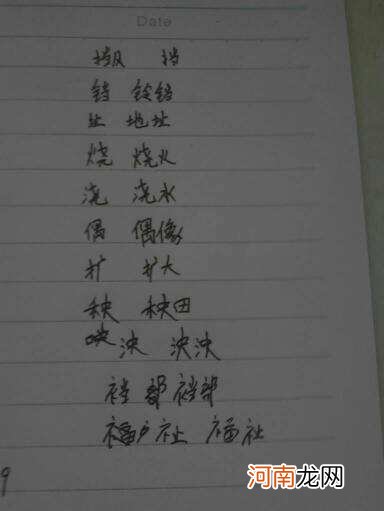 Date
挡
铛 铃铛
址 地址
烧 烧火
浇 浇水
偶 偶像
扩 扩大
秧 秧田
泱 泱泱
裆 部 裆部
福 社 福社
9
河南龙网